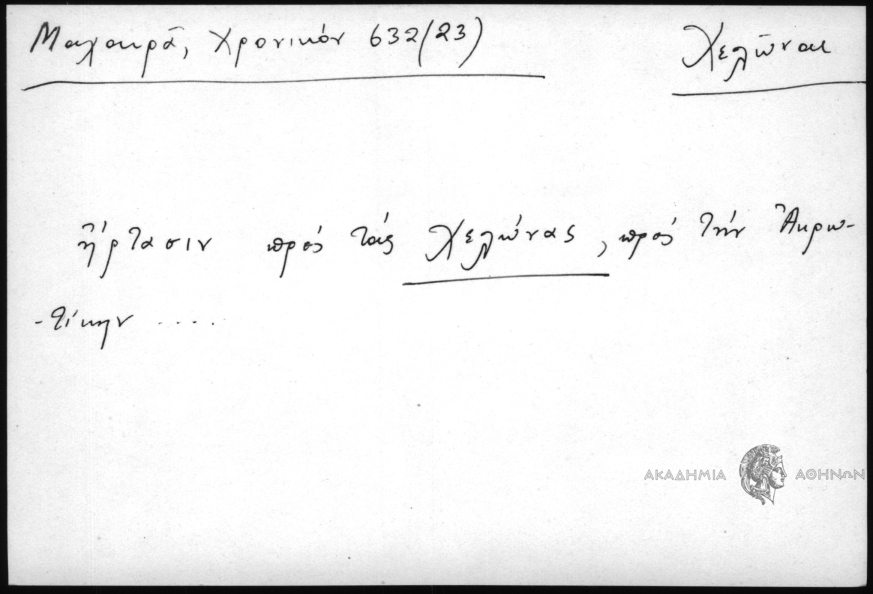 Μαχαιρᾶ, Χρονικόν 632/23)
Χελῶναι
ἦρτασιν πρός τάς Χελώνας, πρός τήν Ἀκρω-
-τίκην ....
ΑΚΑΔΗΜΙΑ ΑΘΗΝΩΝ